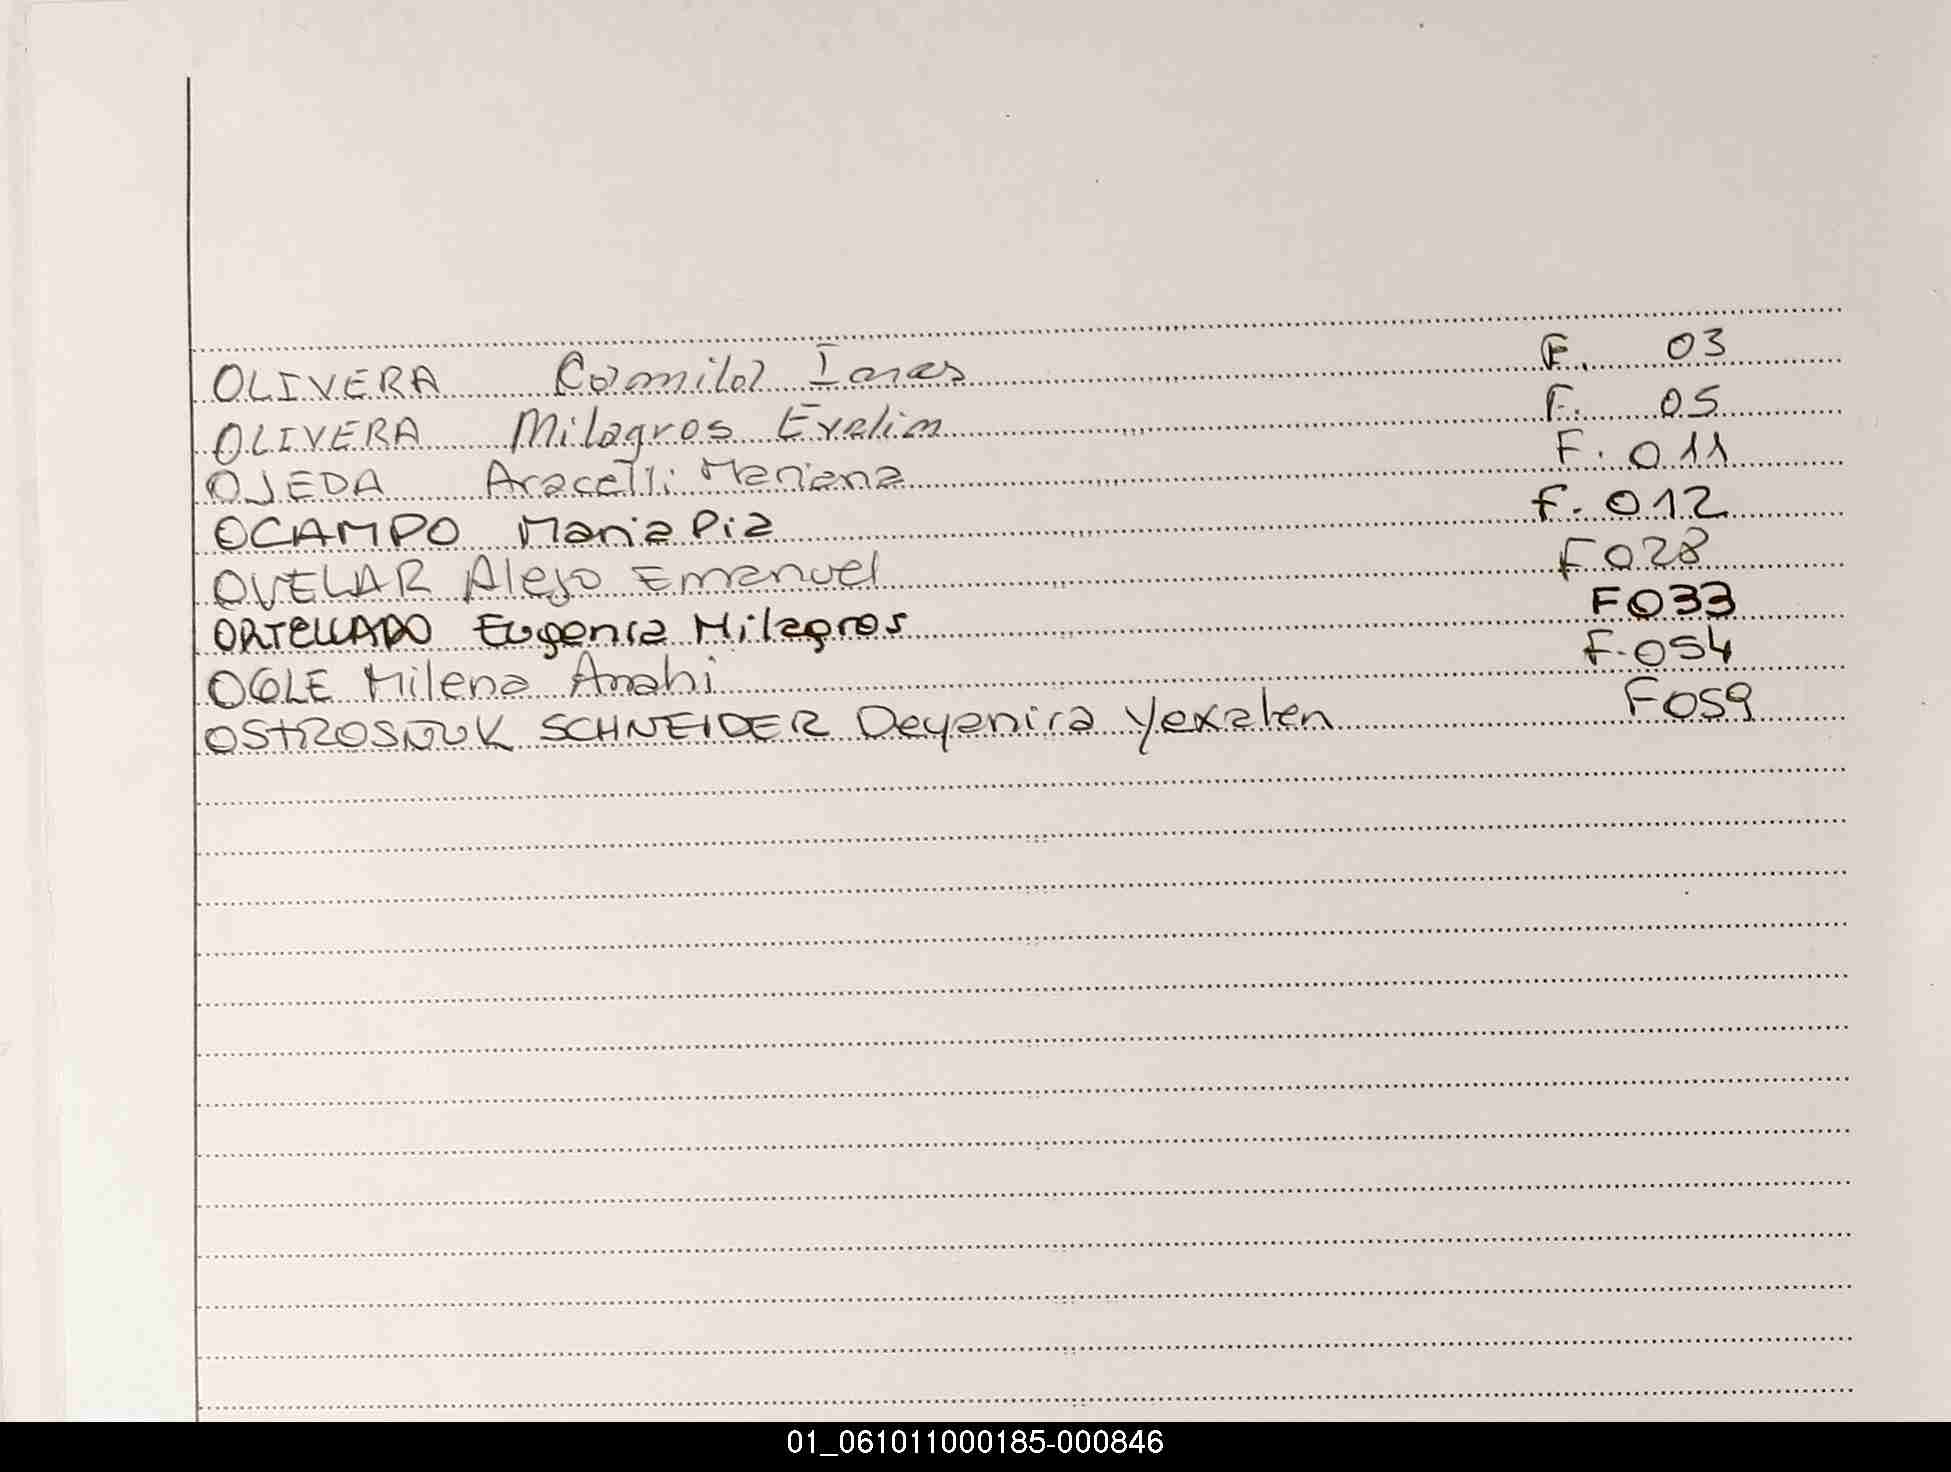 OLIVERA Camila Ianas F. 03
OLIVERA Milagros Evelin F. 05
OJEDA Aracelli Mariana F. 011
OCAMPO Maria Pia F. 012
OVELAR Alejo Emanuel F028
ORTELLADO Eugenia Milagros F033
OGLE Milena Anahi F.054
SCHNEIDER Deyanira Yexalen F059
01_061011000185-000846